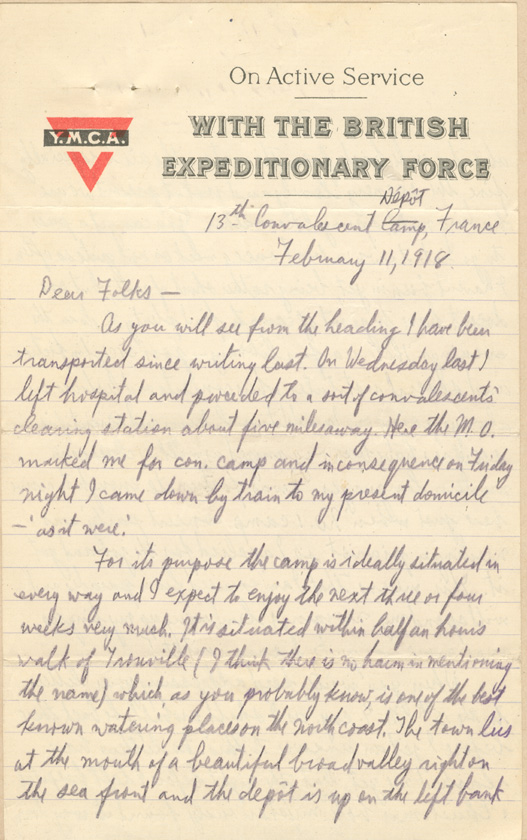 On Active Service
WITH THE BRITISH
EXPEDITIONARY FORCE
Y.M.C.A.
Depôt
13th Convalescent Camp, France
February 11, 1918.
Dear Folks —
As you will see from the heading I have been
transported since writing last. On Wednesday last I
left hospital and proceeded to a sort of convalescents'
clearing station about five miles away. Here the M.O.
marked me for con. camp and in consequence on Friday
night I came down by train to my present domicile
— 'as it were.'
For its purpose the camp is ideally situated in
every way and I expect to enjoy the next three or four
weeks very much. It is situated within half an hours
walk of Trouville (I think there is no harm in mentioning
the name) which, as you probably know, is one of the best
known watering places on the north coast. The town lies
at the mouth of a beautiful broad valley right on
the sea front and the depôt is up on the left bank